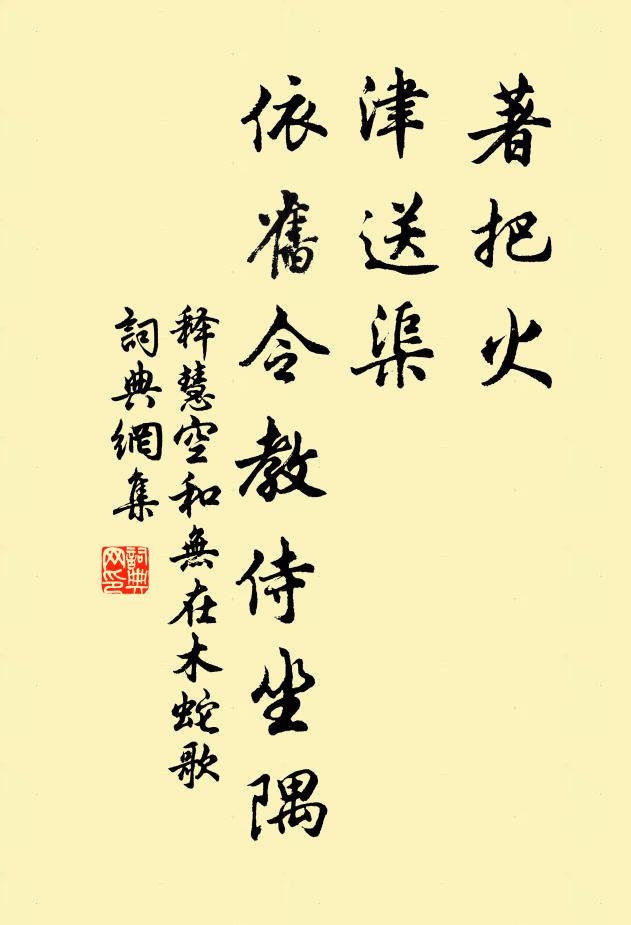 著把火
津送渠
依舊令教侍坐隅
释慧空和無在木蛇歌
詞典網集
詞典
网印